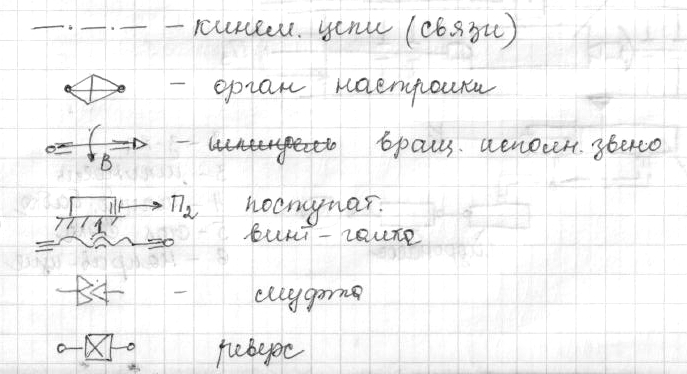 — кинем. цепи (связи)
— орган настройки
В — шпиндель вращ. исполн. звено
П₂ поступат.
1 винт-гайка
— муфта
реверс